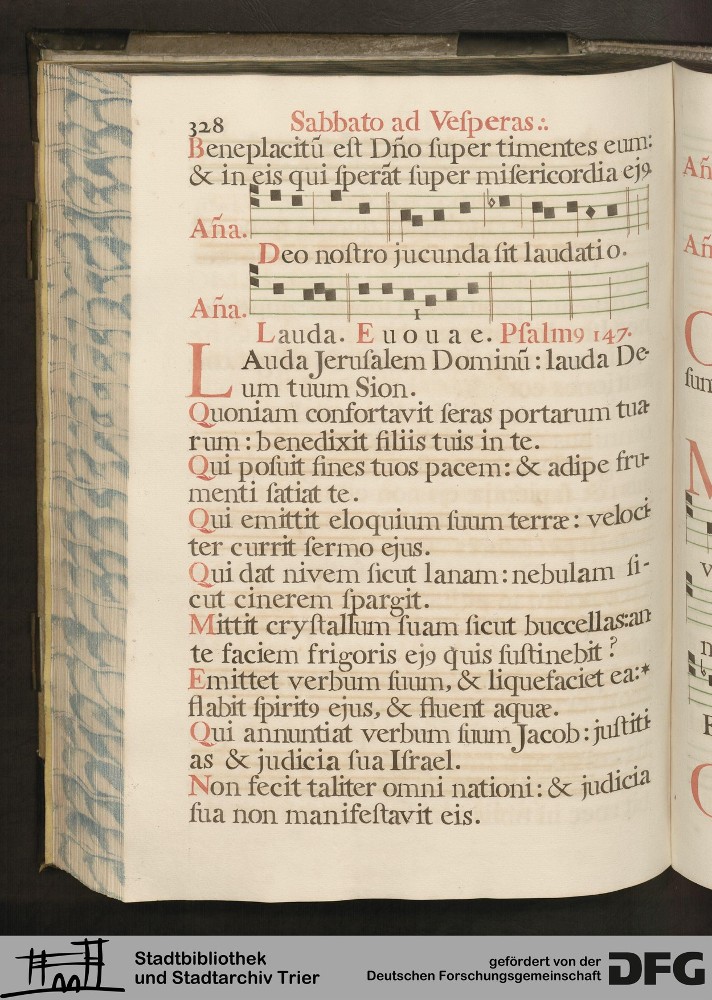 328 Sabbato ad Veſperas:.
Beneplacitũ eſt Dño ſuper timentes eum:
& in eis qui ſperãt ſuper miſericordia ejꝰ
Aña.
Deo noſtro jucunda ſit laudatio.
Aña.
1
Lauda. E u o u a e. Pſalmꝰ 147.
LAuda Jeruſalem Dominũ: lauda De-
um tuum Sion.
Quoniam confortavit ſeras portarum tua-
rum: benedixit filiis tuis in te.
Qui poſuit fines tuos pacem: & adipe fru-
menti ſatiat te.
Qui emittit eloquium ſuum terræ: veloci-
ter currit ſermo ejus.
Qui dat nivem ſicut lanam: nebulam ſi-
cut cinerem ſpargit.
Mittit cryſtallum ſuam ſicut buccellas: an-
te faciem frigoris ejꝰ quis ſuſtinebit?
Emittet verbum ſuum, & liquefaciet ea:*
flabit ſpiritꝰ ejus, & fluent aquæ.
Qui annuntiat verbum ſuum Jacob: juſtiti-
as & judicia ſua Iſrael.
Non fecit taliter omni nationi: & judicia
ſua non manifeſtavit eis.
Añ
Añ
ſum
M
Stadtbibliothek
und Stadtarchiv Trier
gefördert von der
Deutschen Forschungsgemeinschaft
DFG